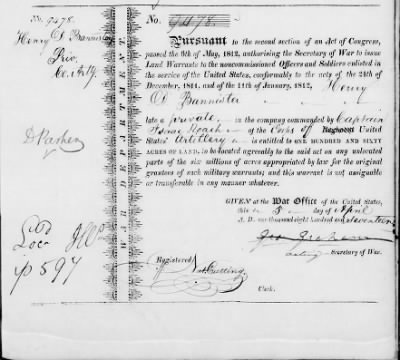 No. 9478.
Henry D. Bannister
Priv.
Co. Arty.
D Parker
WAR DEPARTMENT.
No. 9478.
Pursuant to the second section of an Act of Congress,
passed the 6th of May, 1812, authorising the Secretary of War to issue
Land Warrants to the noncommissioned Officers and Soldiers enlisted in
the service of the United States, conformably to the acts of the 24th of
December, 1811, and of the 11th of January, 1812, Henry
D Bannister
late a private in the company commanded by Captain
Isaac Roach of the Corps of Regiment United
States' Artillery is entitled to ONE HUNDRED AND SIXTY
ACRES OF LAND, to be located agreeably to the said act on any unlocated
part of the six millions of acres appropriated by law for the original
grantees of such military warrants; and this warrant is not assignable
or transferable in any manner whatever.
GIVEN at the War Office of the United States,
this 5 day of April
A. D. one thousand eight hundred and seventeen
Geo Graham
acting Secretary of War.
Registered
Nat Cutting
Clerk.
Loc
p 597